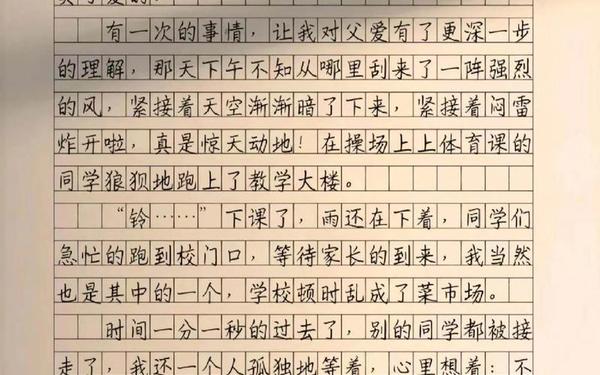 有一次的事情，让我对父爱有了更深一步
的理解，那天下午不知从哪里刮来了一阵强烈
的风，紧接着天空渐渐暗了下来，紧接着闷雷
炸开啦，真是惊天动地！在操场上上体育课的
同学狼狈地跑上了教学大楼。
“铃……”下课了，雨还在下着，同学们
急忙的跑到校门口，等待家长的到来，我当然
也是其中的一个，学校顿时乱成了菜市场。
时间一分一秒的过去了，别的同学都被接
走了，我还一个人孤独地等着，心里想着：不